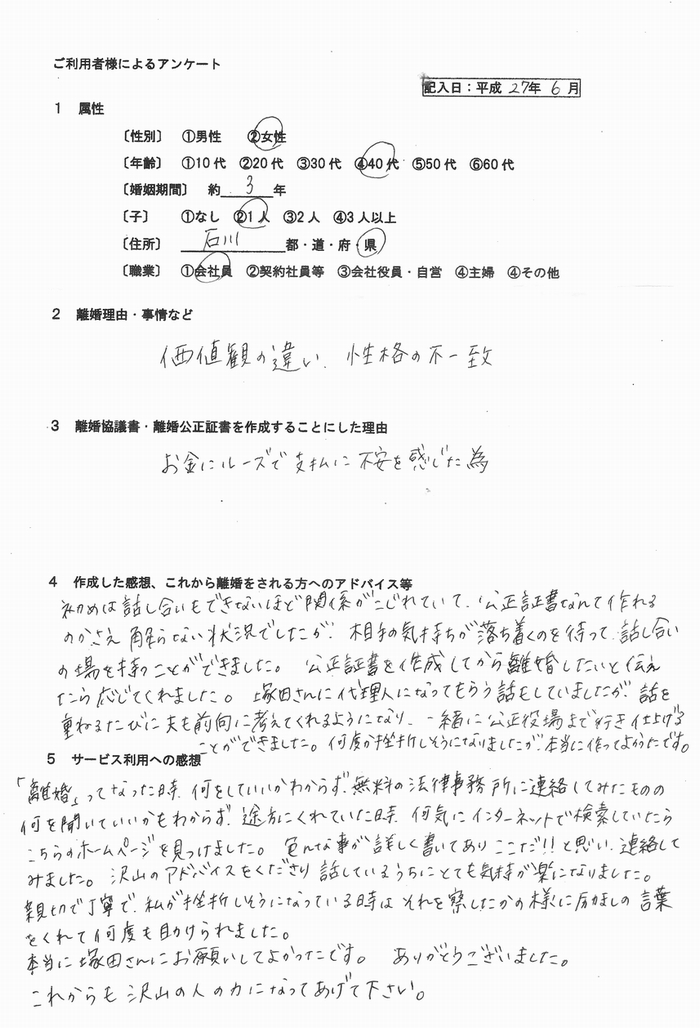 ご利用者様によるアンケート
記入日：平成 27年 6月
1 属性
〔性別〕 ①男性 ②女性
〔年齢〕 ①10代 ②20代 ③30代 ④40代 ⑤50代 ⑥60代
〔婚姻期間〕 約 3 年
〔子〕 ①なし ②1人 ③2人 ④3人以上
〔住所〕 石川 都・道・府・県
〔職業〕 ①会社員 ②契約社員等 ③会社役員・自営 ④主婦 ④その他
2 離婚理由・事情など
価値観の違い、性格の不一致
3 離婚協議書・離婚公正証書を作成することにした理由
お金にルーズで支払に不安を感じた為
4 作成した感想、これから離婚をされる方へのアドバイス等
初めは話し合いもできないほど関係がこじれていて、公正証書なんて作れる
のかさえ解らない状況でしたが、相手の気持ちが落ち着くのを待って、話し合い
の場を持つことができました。公正証書を作成してから離婚したいと伝え
たら応じてくれました。塚田さんに代理人になってもらう話もしていましたが、話を
重ねるたびに夫も前向に考えてくれるようになり、一緒に公正役場まで行き仕上げる
ことができました。何度か挫折しそうになりましたが、本当に作ってよかったです。
5 サービス利用への感想
「離婚」ってなった時、何をしていいかわからず、無料の法律事務所に連絡してみたものの
何を聞いていいかもわからず、途方にくれていた時、何気にインターネットで検索していたら
こちらのホームページを見つけました。色んな事が詳しく書いてありここだ!!と思い、連絡して
みました。沢山のアドバイスをくださり話しているうちにとても気持が楽になりました。
親切で丁寧で、私が挫折しそうになっている時はそれを察したかの様に励ましの言葉
をくれて何度も助けられました。
本当に塚田さんにお願いしてよかったです。 ありがとうございました。
これからも沢山の人の力になってあげて下さい。